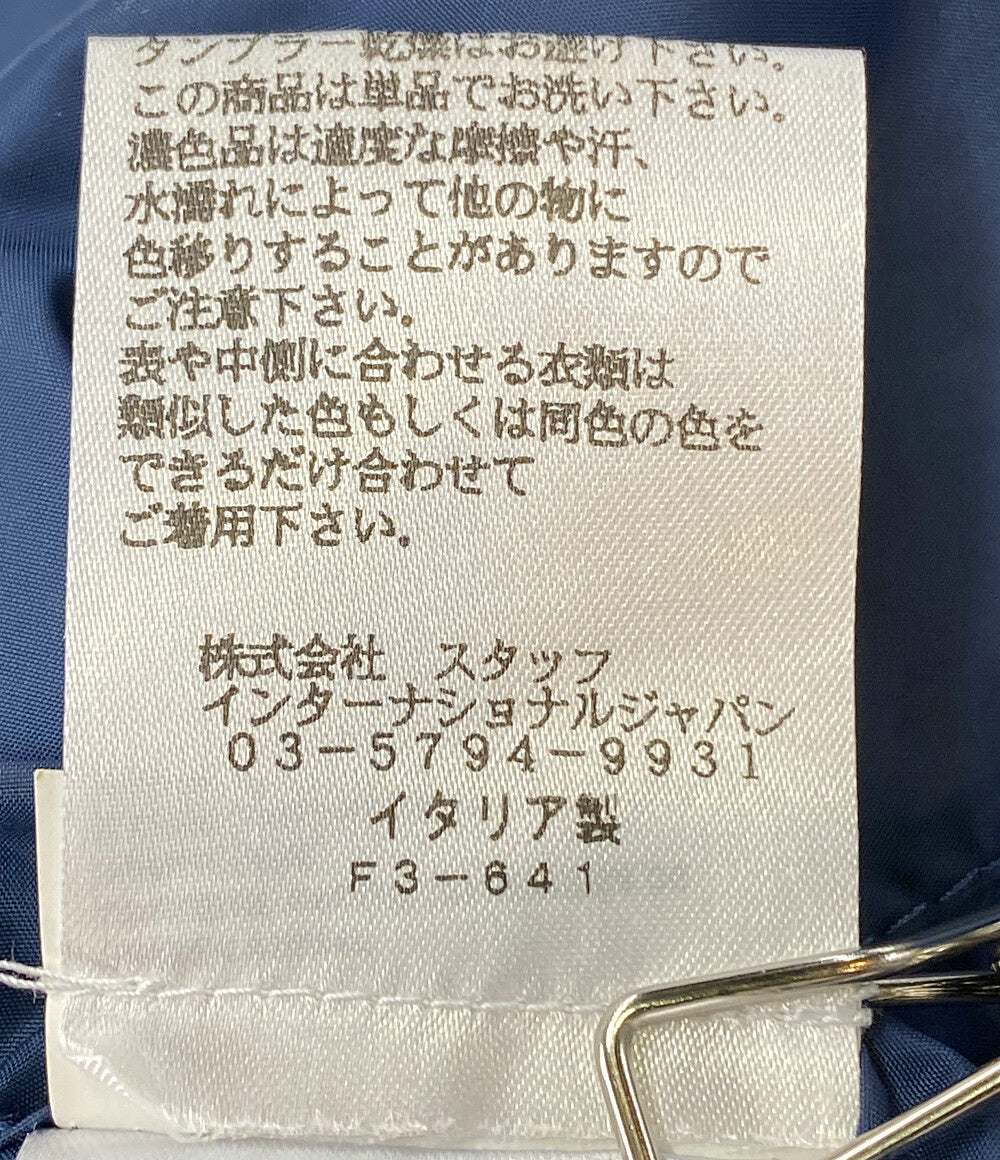 タンブラー乾燥はお避け下さい。
この商品は単品でお洗い下さい。
濃色品は適度な摩擦や汗、
水濡れによって他の物に
色移りすることがありますので
ご注意下さい。
表や中側に合わせる衣類は
類似した色もしくは同色の色を
できるだけ合わせて
ご着用下さい。
株式会社　スタッフ
インターナショナルジャパン
03-5794-9931
イタリア製
F3-641